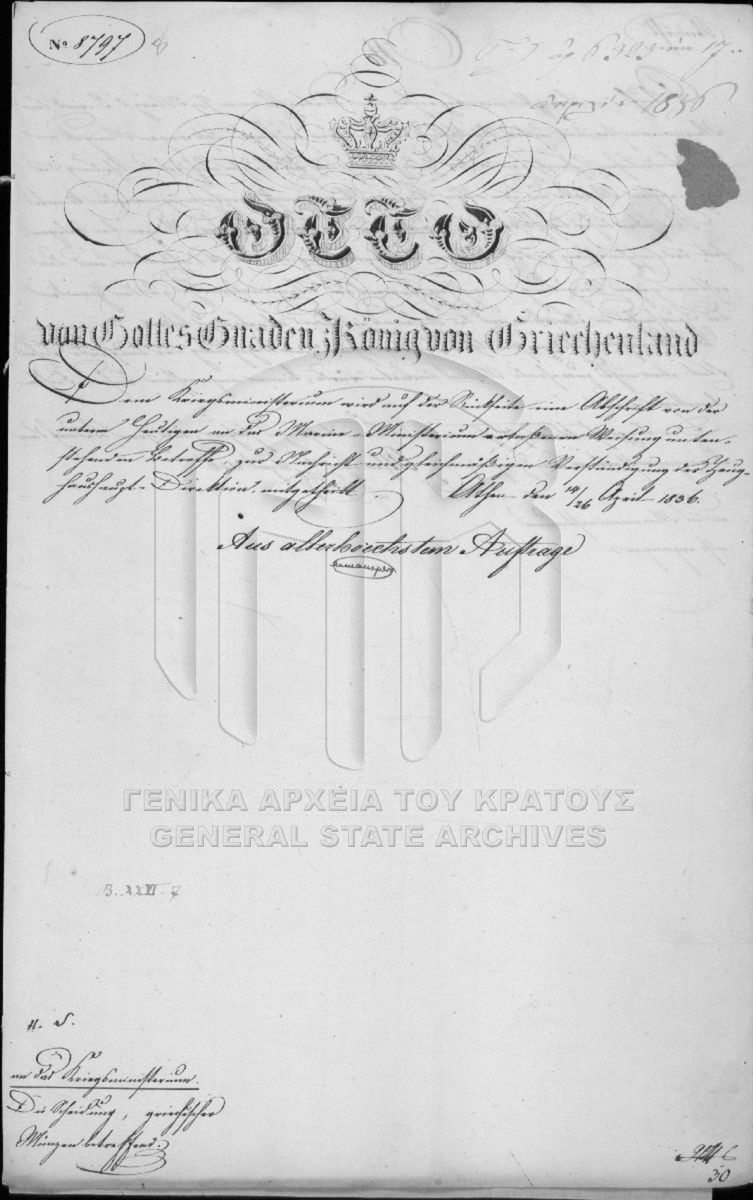 No 8797
1836
OTTO
von Gottes Gnaden, König von Griechenland
Dem Kriegsministerium wird auf der Rückseite eine Abschrift von der
unterm Heutigen an das Marine-Ministerium erlaßenen Weisung unten-
stehenden Betreffs zur Nachricht und gleichmäßigen Verständigung der Zeug-
haushaupt-Direktion mitgetheilt. Athen den 14/26 April 1836.
Aus allerhoechstem Auftrage
ΓΕΝΙΚΑ ΑΡΧΕΙΑ ΤΟΥ ΚΡΑΤΟΥΣ
GENERAL STATE ARCHIVES
B. XXVI. 7
an das Kriegsministerium.
Die Scheidung, griechischer
Münzen betreffend.
30